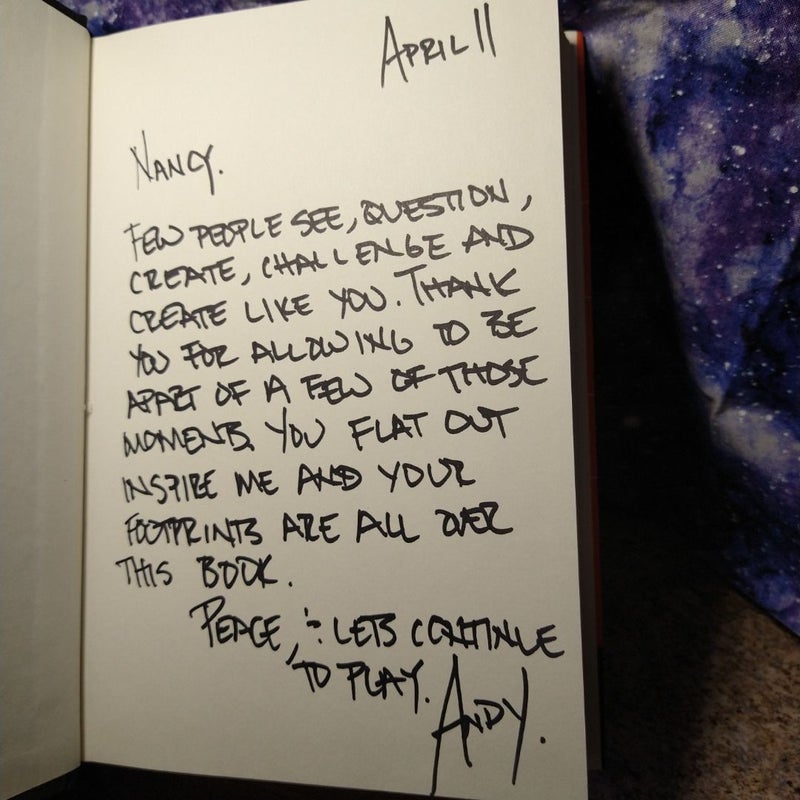 APRIL 11
NANCY.
FEW PEOPLE SEE, QUESTION,
CREATE, CHALLENGE AND
CREATE LIKE YOU. THANK
YOU FOR ALLOWING TO BE
APART OF A FEW OF THOSE
MOMENTS. YOU FLAT OUT
INSPIRE ME AND YOUR
FOOTPRINTS ARE ALL OVER
THIS BOOK.
PEACE, ÷ LETS CONTINUE
TO PLAY.
ANDY.